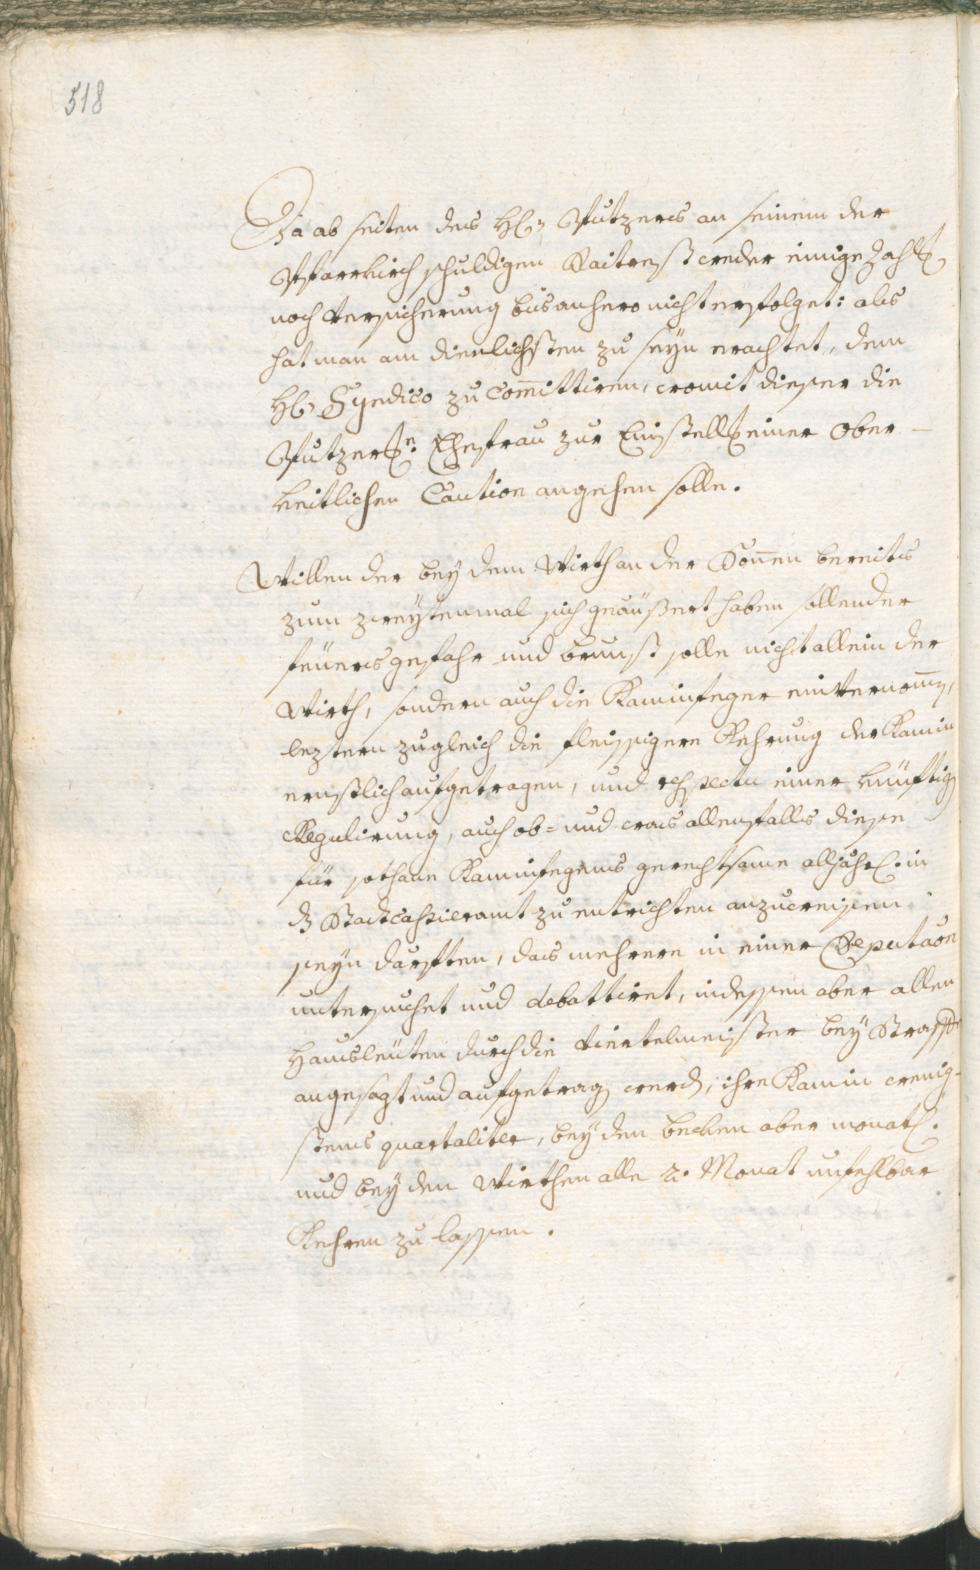 518
Da ab seiten des H: Stutzers an seinem der
Pfarrkirch schuldigen Raitrest weder einige Zahlg
noch Versicherung bis anhero nicht erfolget: als
hat man am dienlichsten zu seyn erachtet, dem
H: Syndico zu committiren, womit dieser die
Stutzers: Ehefrau zur Einstellg einer Ober-
keitlichen Caution angehen solle.
Willen der bey dem Wirth an der Sonnen bereits
zum zweytenmal sich geäußert haben sollender
feuersgefahr und brunst solle nicht allein der
Wirth, sondern auch die Kaminfeger einvernommen,
leztern zugleich die fleissigere Kehrung der Kamin
ernstlich aufgetragen, und respectu einer künftig
Regulirung, auch ob- und was allenfalls diese
für sothane Kaminfegers gerechtsame alljährl: in
dz Stattcassieramt zu entrichten anzuweisen
seyn därfften, das mehrere in einer Deputaon
untersuchet und debattiret, indessen aber allen
Hausleüten durch die Viertelmeister bey Straff
angesagt und aufgetrag werd, ihre Kamin wenig-
stens quartaliter, bey den becken aber monatl:
und bey den Wirthen alle 2. Monat unfehlbar
Kehren zu lassen.